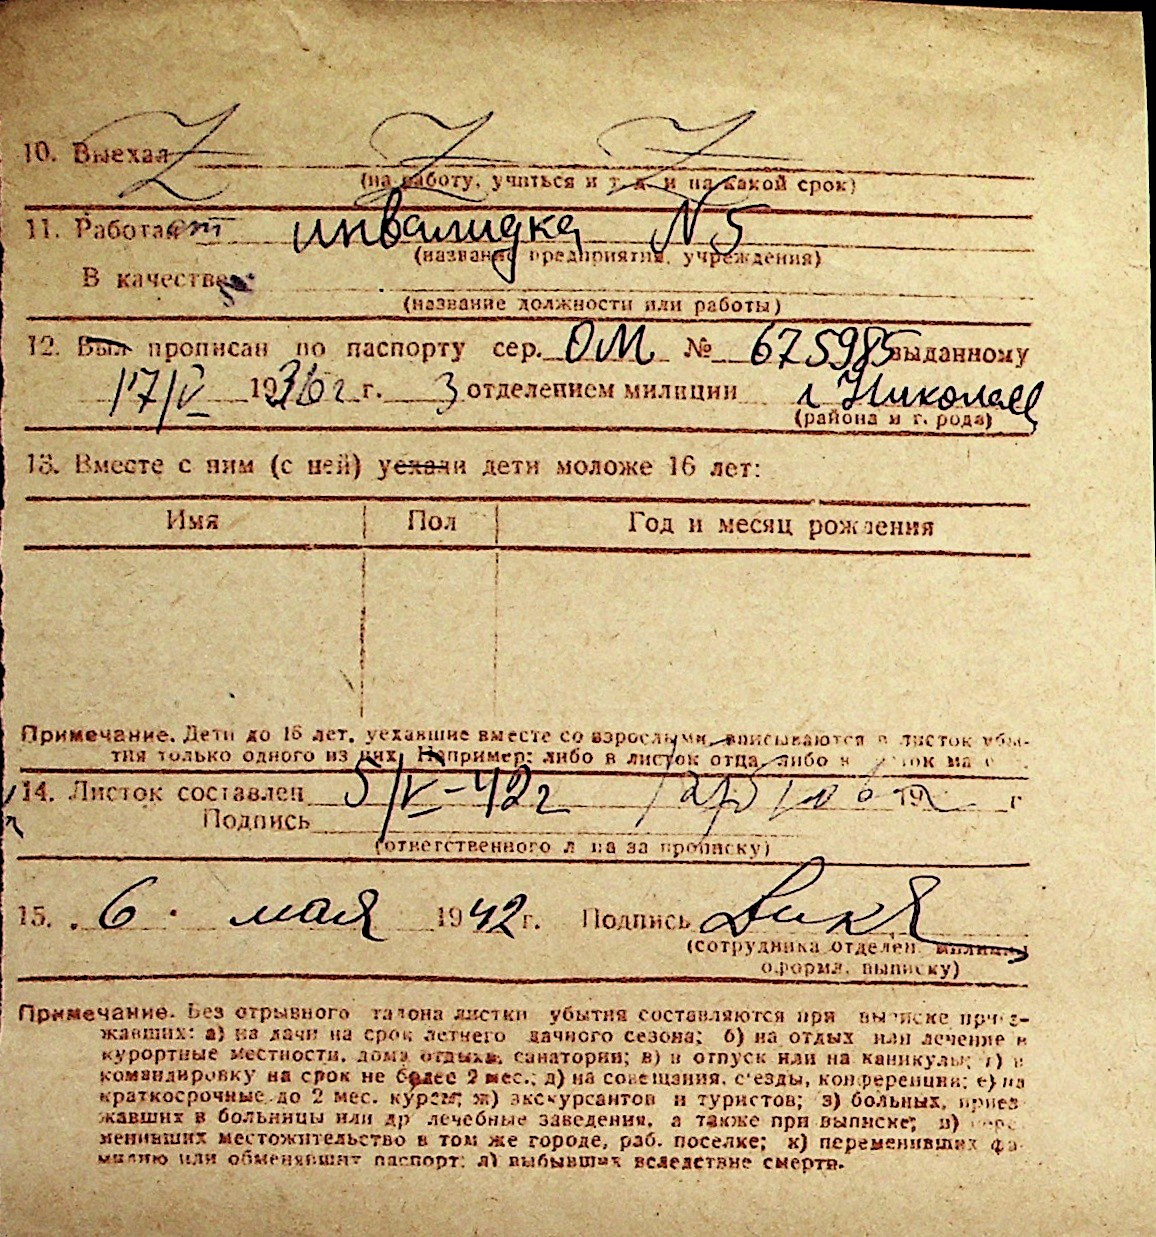 10. Выехал Z Z Z
(на работу, учиться и т. д. и на какой срок)
11. Работает инвалидка N 5
(название предприятия, учреждения)
В качестве
(название должности или работы)
12. Был прописан по паспорту сер. ОМ № 675985 выданному
17/V 1936 г. г. 3 отделением милиции г Николаев
(района и г. рода)
13. Вместе с ним (с ней) уехали дети моложе 16 лет:
Имя Пол Год и месяц рождения
Примечание. Дети до 16 лет, уехавшие вместе со взрослыми, вписываются в листок убы-
тия только одного из них. Например: либо в листок отца, либо в листок ма
14. Листок составлен 5/V-42 г 19 г
Подпись
(ответственного л на за прописку)
15. 6. мая 1942 г. Подпись
(сотрудника отделен. милиции
оформл. выписку)
Примечание. Без отрывного талона листки убытия составляются при выписке приез-
жавших: а) на дачи на срок летнего дачного сезона; б) на отдых или лечение в
курортные местности, дома отдыха, санатории; в) в отпуск или на каникулы; г) в
командировку на срок не более 2 мес.; д) на совещания, с'езды, конференции; е) на
краткосрочные до 2 мес. курсы; ж) экскурсантов и туристов; з) больных, приез
жавших в больницы или др лечебные заведения, а также при выписке; и) пере
менивших местожительство в том же городе, раб. поселке; к) переменивших фа
милию или обменявших паспорт; л) выбывших вследствие смерти.